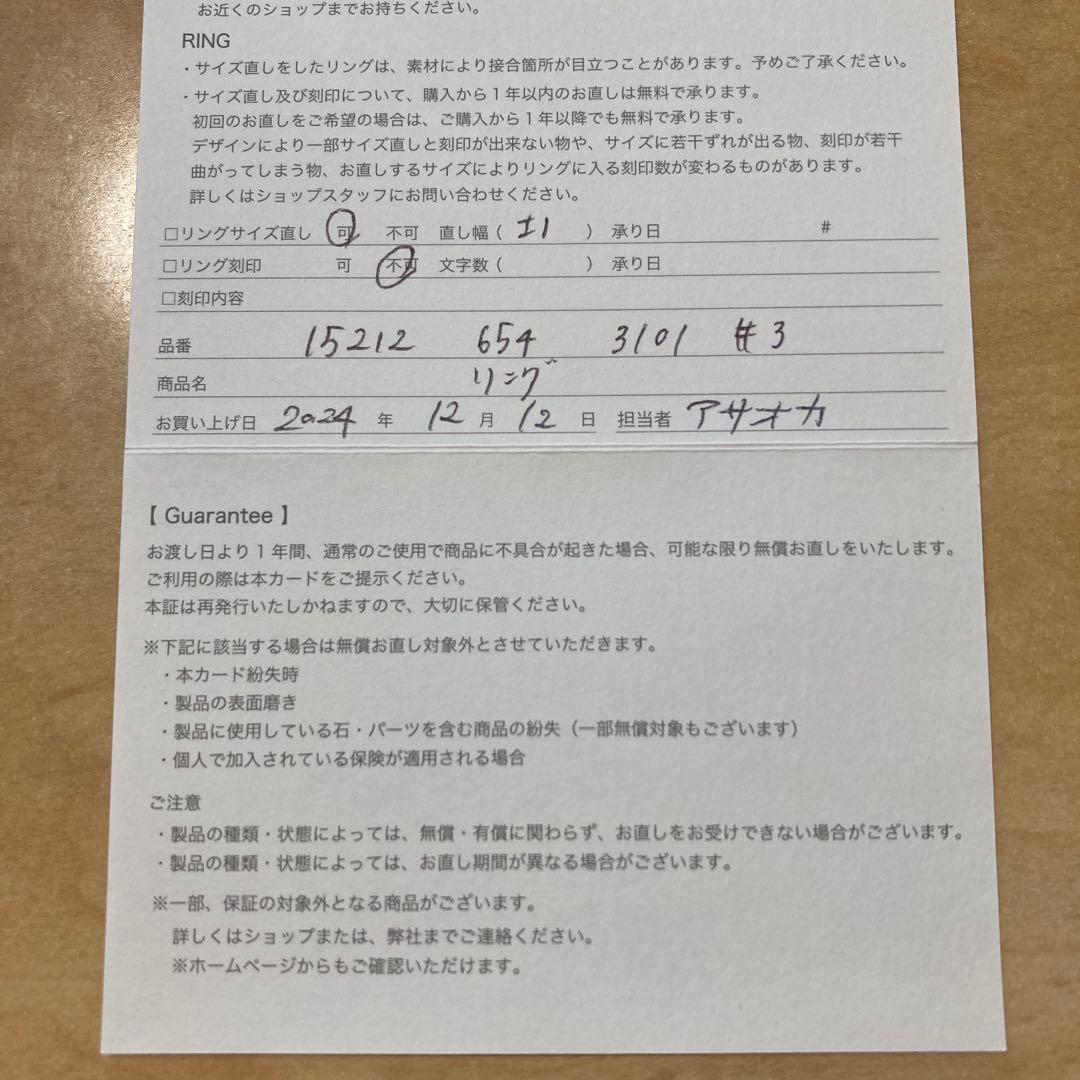 お近くのショップまでお持ちください。
RING
・サイズ直しをしたリングは、素材により接合箇所が目立つことがあります。予めご了承ください。
・サイズ直し及び刻印について、購入から1年以内のお直しは無料で承ります。
初回のお直しをご希望の場合は、ご購入から1年以降でも無料で承ります。
デザインにより一部サイズ直しと刻印が出来ない物や、サイズに若干ずれが出る物、刻印が若干
曲がってしまう物、お直しするサイズによりリングに入る刻印数が変わるものがあります。
詳しくはショップスタッフにお問い合わせください。
□リングサイズ直し 可 不可 直し幅（ ±1 ） 承り日 #
□リング刻印 可 不可 文字数（ ） 承り日
□刻印内容
品番 15212 654 3101 #3
商品名 リング
お買い上げ日 2024 年 12 月 12 日 担当者 アサオカ
【 Guarantee 】
お渡し日より1年間、通常のご使用で商品に不具合が起きた場合、可能な限り無償お直しをいたします。
ご利用の際は本カードをご提示ください。
本証は再発行いたしかねますので、大切に保管ください。
※下記に該当する場合は無償お直し対象外とさせていただきます。
・本カード紛失時
・製品の表面磨き
・製品に使用している石・パーツを含む商品の紛失（一部無償対象もございます）
・個人で加入されている保険が適用される場合
ご注意
・製品の種類・状態によっては、無償・有償に関わらず、お直しをお受けできない場合がございます。
・製品の種類・状態によっては、お直し期間が異なる場合がございます。
※一部、保証の対象外となる商品がございます。
詳しくはショップまたは、弊社までご連絡ください。
※ホームページからもご確認いただけます。